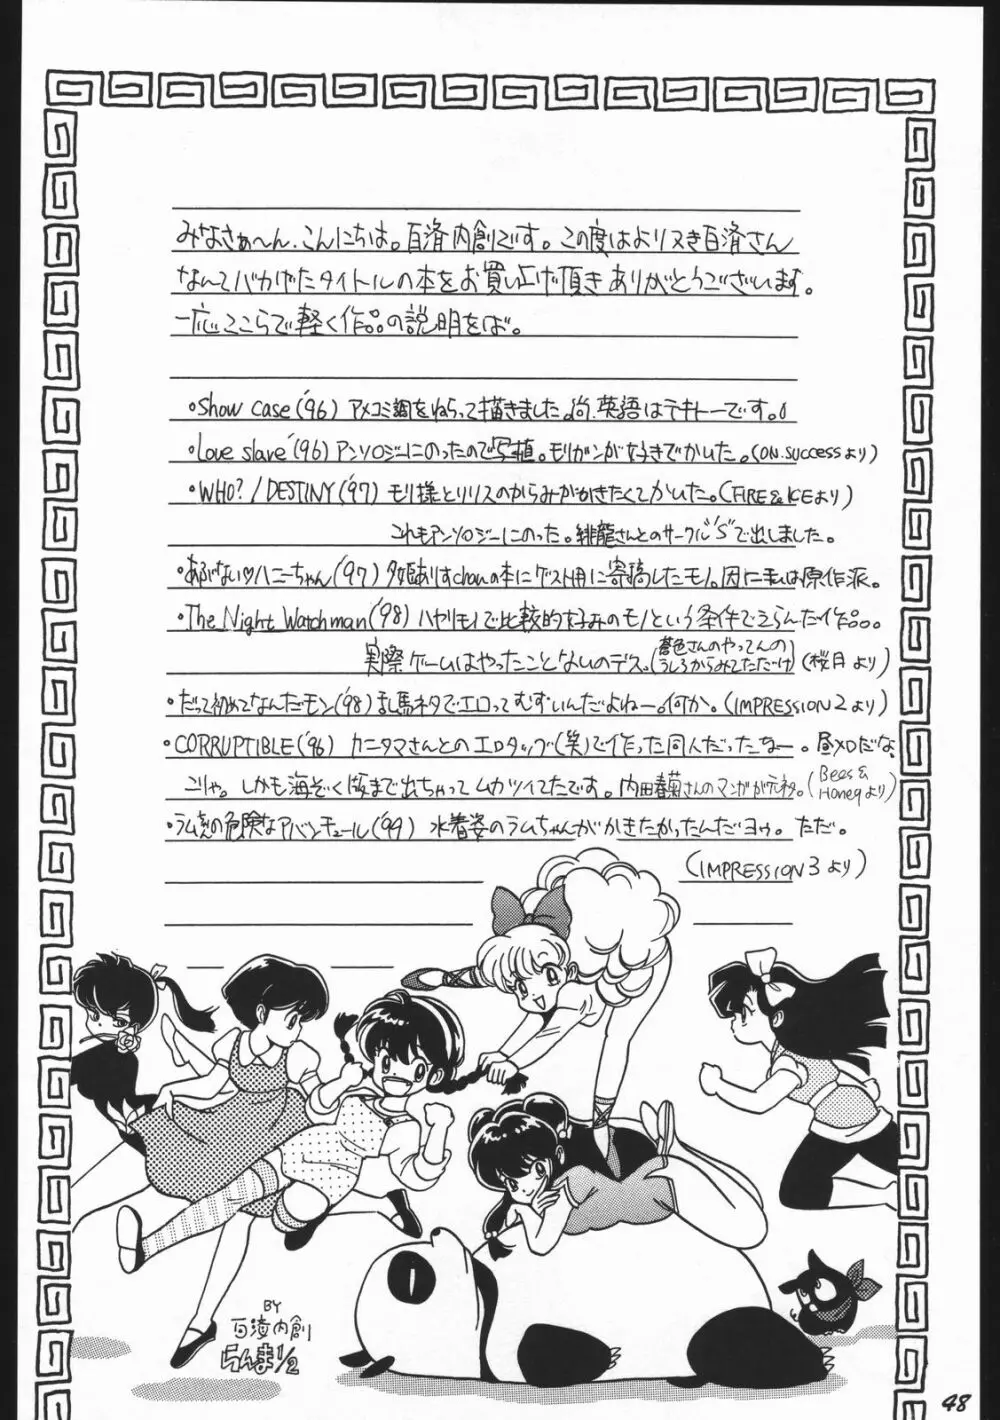 みなさぁ〜ん、こんにちは。百済内創です。この度はよりヌき百済さん
なんてバカげたタイトルの本をお買い上げ頂きありがとうございます。
一応ここらで軽く作品の説明をば。
・Show case('96) アメコミ調をねらって描きました。尚、英語はテキトーです。
・Love slave('96) アンソロジーにのったので写植。モリガンが好きでかいた。(ON.SUCCESSより)
・WHO?/DESTINY('97) モリ様とリリスのからみがかきたくてかいた。(FIRE&ICEより)
これもアンソロジーにのった。緋龍さんとのサークル"S"で出しました。
・あぶない♡ハニーちゃん('97) 夕姫ありすchanの本にゲスト用に寄稿したモノ。因に私は原作派。
・The Night Watchman('98) ハヤリモノで比較的好みのモノという条件でえらんだ作品。
実際ゲームはやったことないのデス。(蒼色さんのやってんの
うしろからみてただけ) (桜月より)
・だって初めてなんだモン('98) 乱馬ネタでエロってむずいんだよねー。何か。(IMPRESSION2より)
・CORRUPTIBLE('96) カニタマさんとのエロタッグ(笑)で作った同人だったなー。昼メロだな、
こりゃ。しかも海ぞく版まで出ちゃってムカツイてたです。内田春菊さんのマンガが元ネタ。(Bees &
Honeyより)
・ラムちゃんの危険なアバンチュール('99) 水着姿のラムちゃんがかきたかったんだヨゥ。ただ。
(IMPRESSION3より)
BY
百済内創
らんま1/2
48